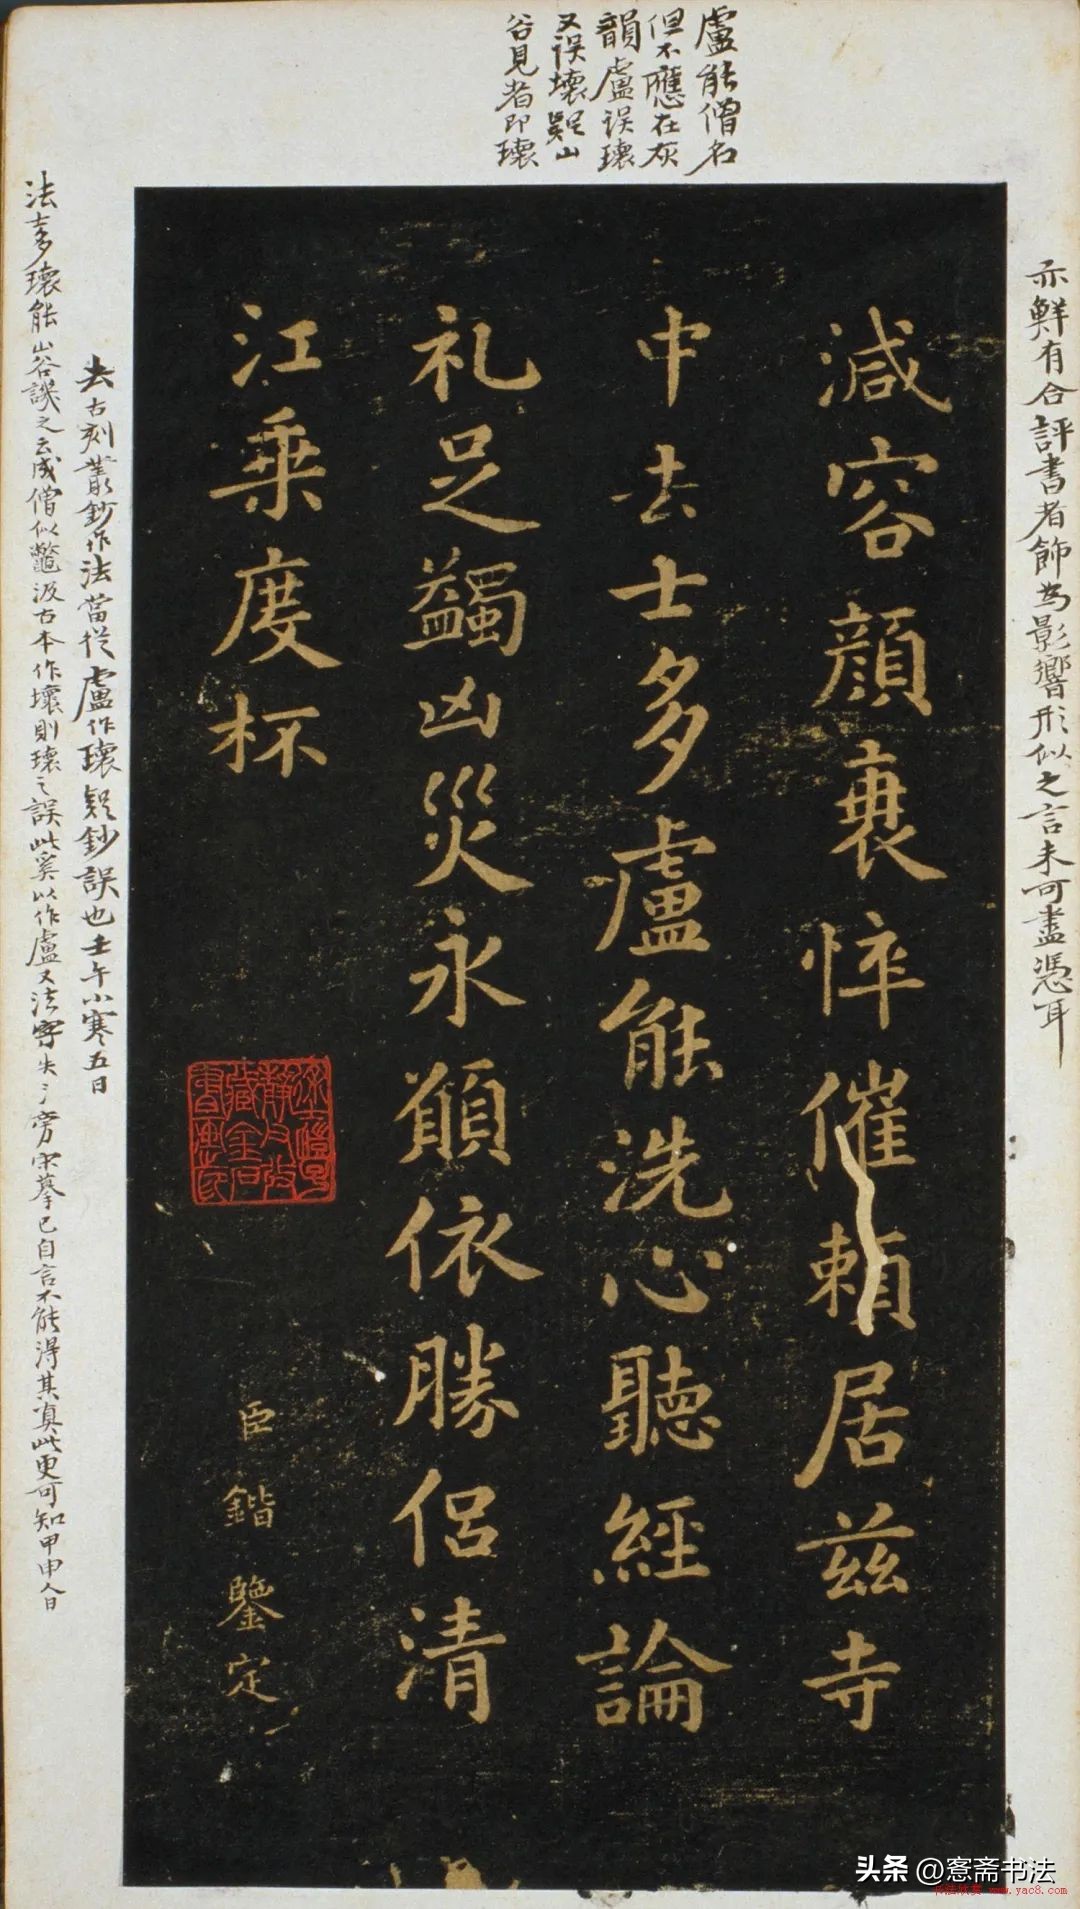 盧能僧名
但不應在灰
韻盧誤瓌
又誤壞疑山
谷見者即瓌
亦鮮有合評書者飾為影響形似之言未可盡憑耳
減容顏衰悴催頹居茲寺
中去士多盧能洗心聽經論
礼足蠲凶災永願依勝侶清
江乗度杯
臣鍇鑒定
去古刻叢鈔作法當從盧作瓌疑鈔誤也壬午小寒五日
法多瓌能山谷譏之云成僧似鼈汲古本作壞則瓌之誤此奚以作盧又法字失氵旁宋摹已自言不能得其真此更可知甲申人日
头条 @窓斋书法
书法欣赏 www.yac8.com